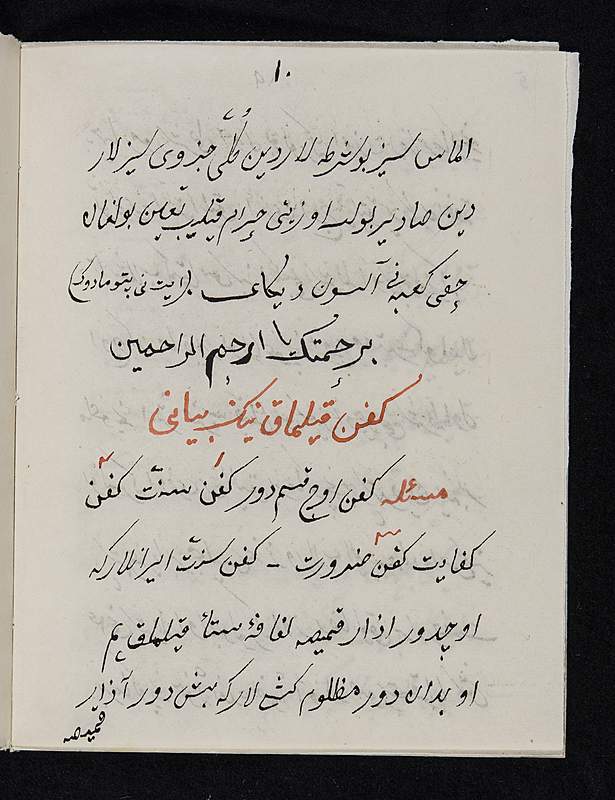 ١٠
الماس سیز بولسه لاردین کلّی جذوی سیز لار
دین صادیر بولب اوزینی حرام قیلیب تعین بولغان
حقی کعبه نی آلسون دیکای
برحمتک یا ارحم الراحمین
کفن قیلماق نینک بیانی
مسئله کفن اوچ قسم دور کفن سنّت کفن
کفایت کفن ضرورت - کفن سنّت ایرانلارکه
اوچدور اذار قمیصه لفافۀ قیلماق هم
او بدان دور مظلوم لارکه بش دور آذار
قمیصه